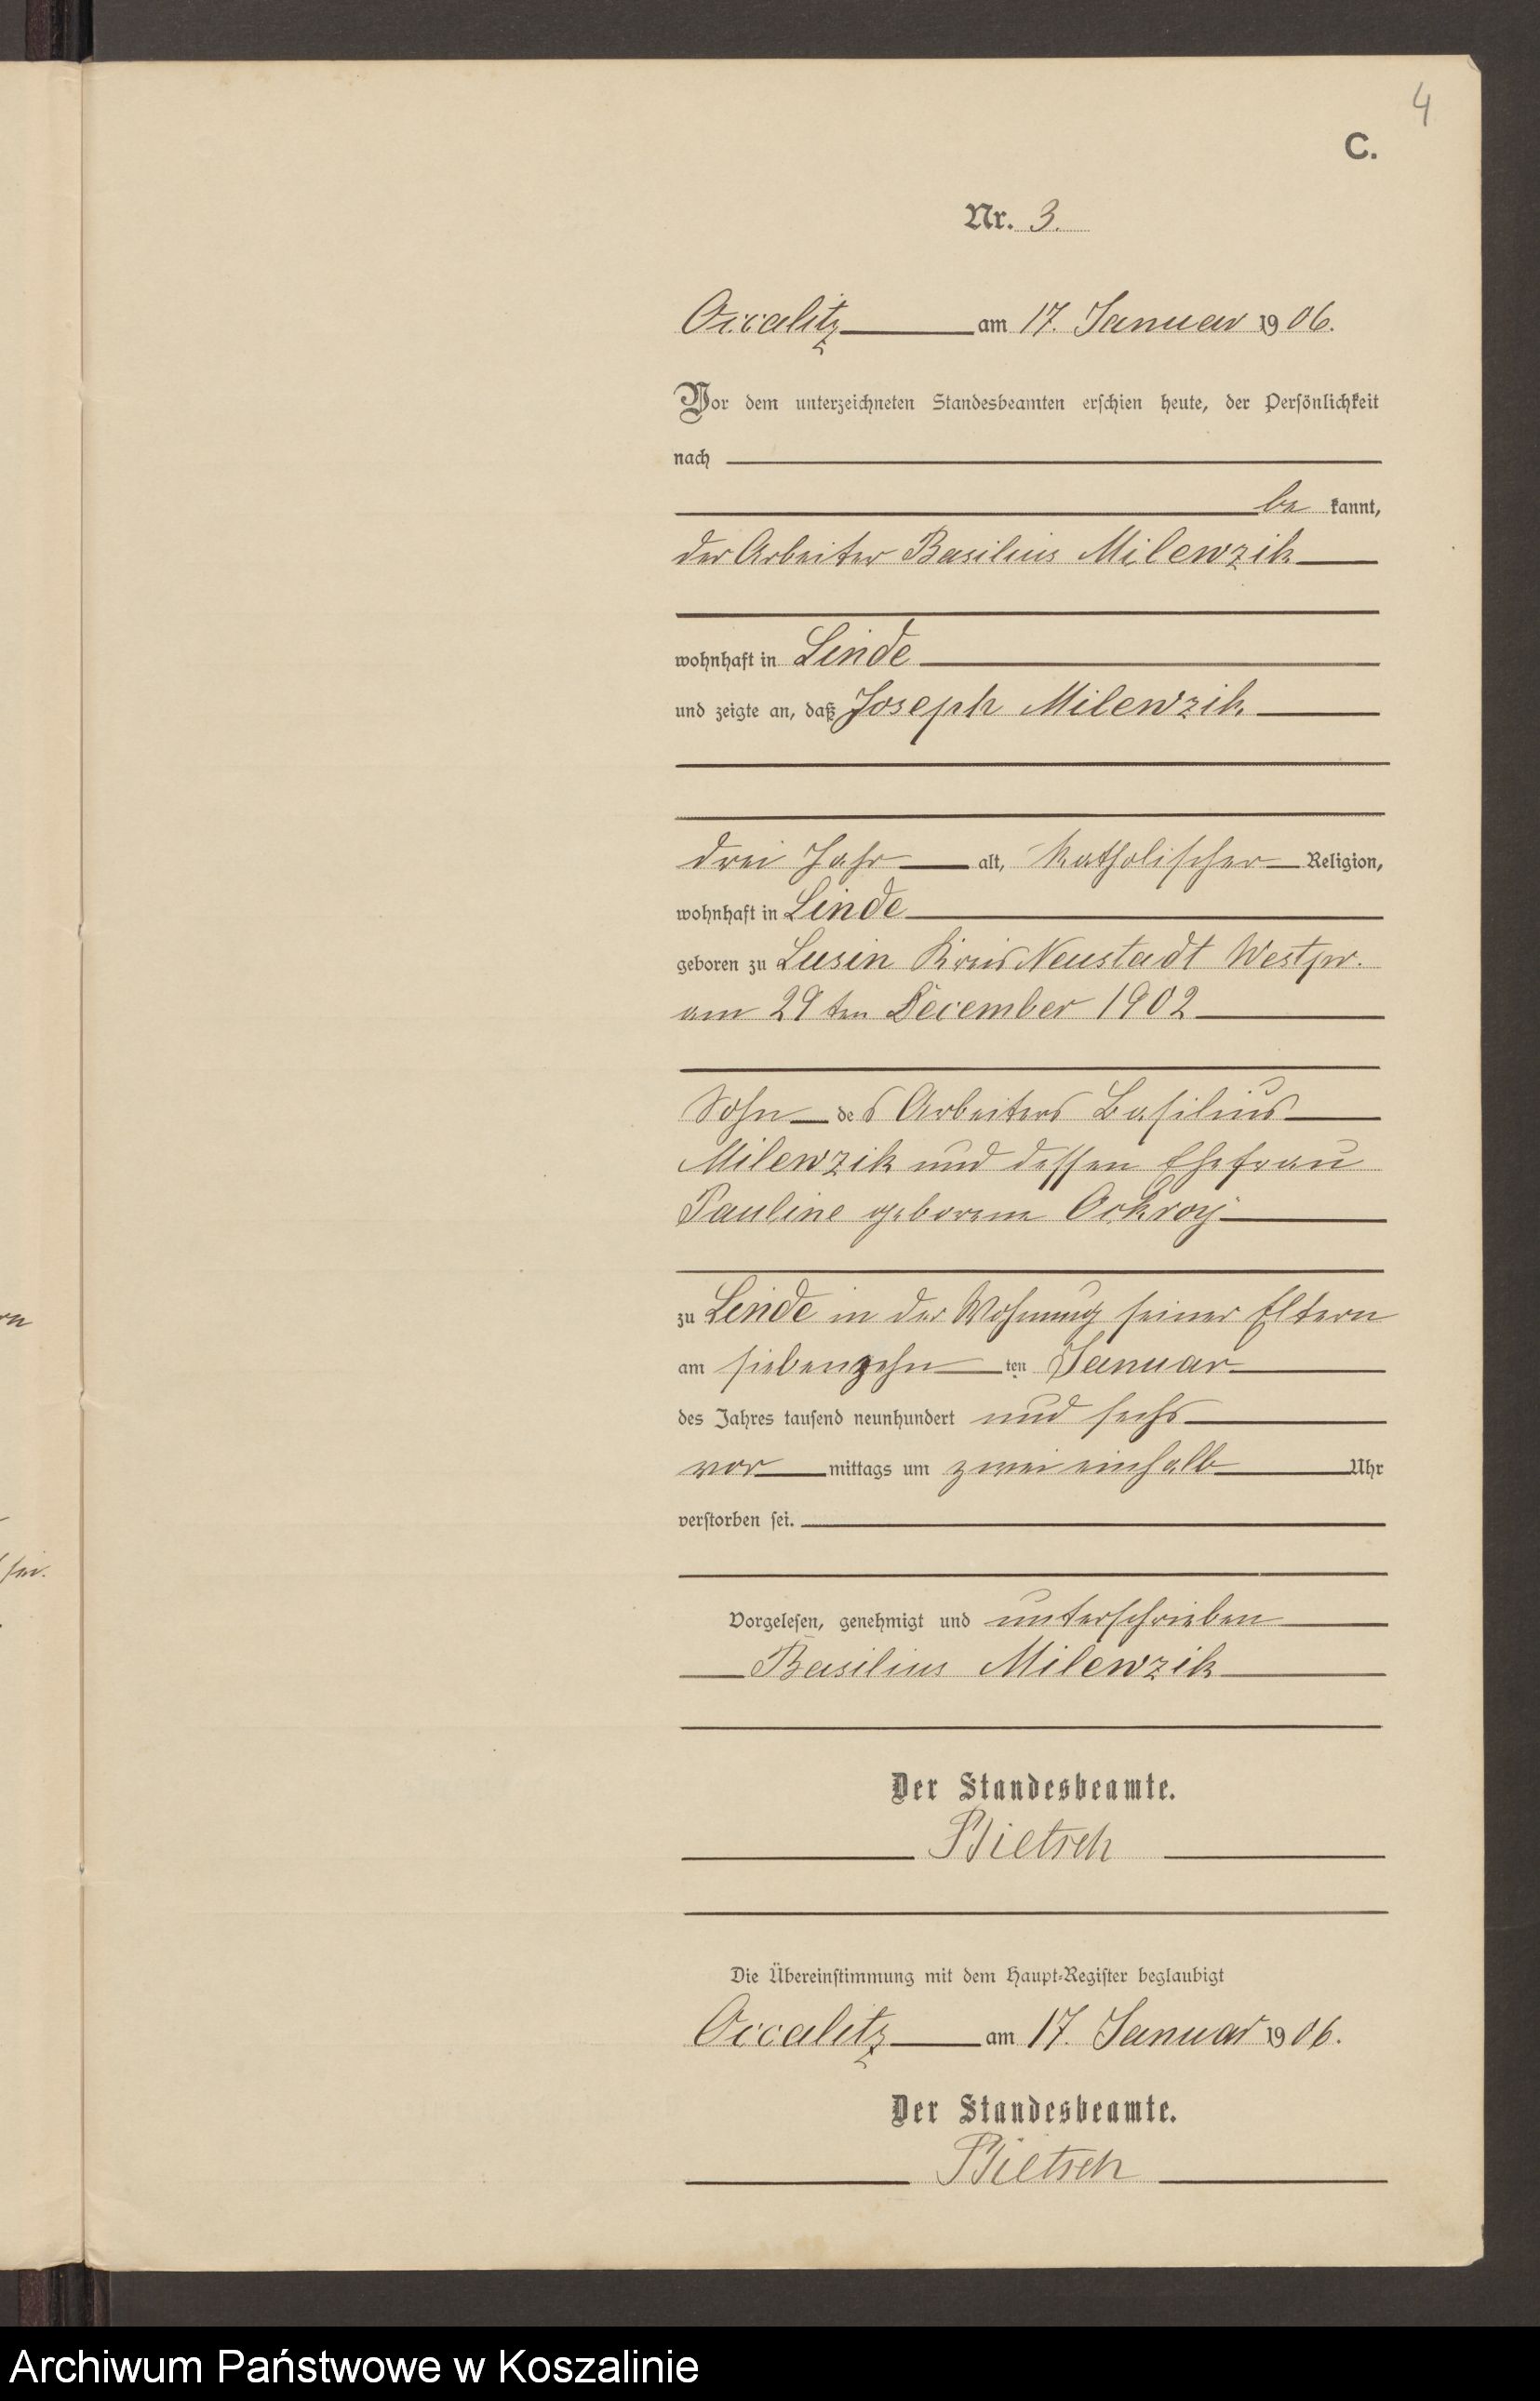 4
C.
Nr. 3.
Occalitz am 17. Januar 1906.
Vor dem unterzeichneten Standesbeamten erschien heute, der Persönlichkeit
nach
be kannt,
der Arbeiter Basilius Milewzik
wohnhaft in Linde
und zeigte an, daß Joseph Milewzik
drei Jahr alt, katholischer Religion,
wohnhaft in Linde
geboren zu Lusin Kreis Neustadt Westpr.
am 29ten December 1902
Sohn des Arbeiters Basilius
Milewzik und dessen Ehefrau
Pauline geborene Ockroy
zu Linde in der Wohnung seiner Eltern
am siebenzehn ten Januar
des Jahres tausend neunhundert und sechs
vor mittags um zwei einhalb Uhr
verstorben sei.
sei.
Vorgelesen, genehmigt und unterschrieben
Basilius Milewzik
Der Standesbeamte.
Bietsch
Die Übereinstimmung mit dem Haupt-Register beglaubigt
Occalitz am 17. Januar 1906.
Der Standesbeamte.
Bietsch
Archiwum Państwowe w Koszalinie